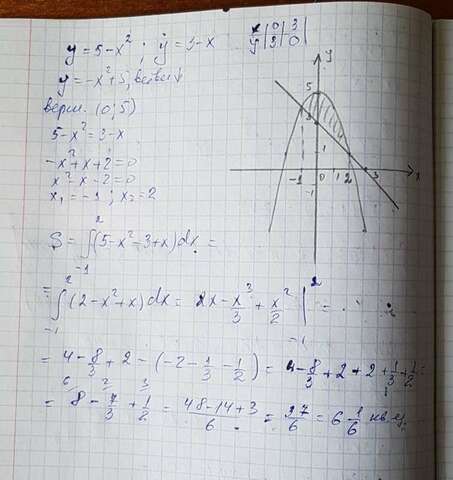 y = 5-x² ; y = 3-x
x | 0 | 3
y | 3 | 0
y = -x²+5, ветви ↓
верш. (0; 5)
5-x² = 3-x
-x²+x+2=0
x²-x-2=0
x₁=-1; x₂=2
y
5
3
1
-1 0 1 2 3 x
-1
S = ∫₋₁² (5-x²-3+x)dx =
= ∫₋₁² (2-x²+x)dx = 2x - x³/3 + x²/2 |₋₁² =
= 4 - 8/3 + 2 - (-2 - 1/3 - 1/2) = 4 - 8/3 + 2 + 2 + 1/3 + 1/2 =
6 2 3
= 8 - 7/3 + 1/2 = (48-14+3)/6 = 37/6 = 6 1/6 кв ед.